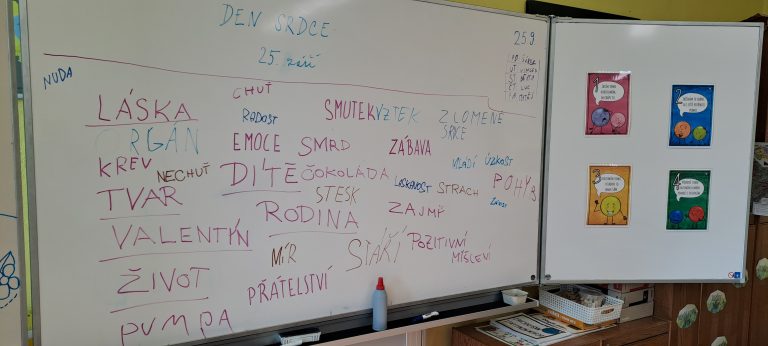 DEN SRDCE
25. září
25.9
NUDA
CHUŤ
LÁSKA
RADOST
SMUTEK
VZTEK
ZLOMENÉ
SRDCE
ORGÁN
EMOCE
SMRD
ZÁBAVA
KREV
NECHUŤ
DÍTĚ
ČOKOLÁDA
LASKAVOST
STRACH
MLÁDÍ
ÚZKOST
POHYB
TVAR
STESK
ZÁVIST
RODINA
ZAJMŘ
VALENTÝN
MÍR
STÁŘÍ
POZITIVNÍ
MYŠLENÍ
ŽIVOT
PŘÁTELSTVÍ
PUMPA
1
2
3
4